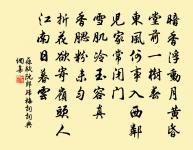 暗香浮動月黃昏
堂前一樹春
東風何事入西鄰
兒家常閉門
雪肌冷玉容真
香腮粉未勻
折花欲寄嶺頭人
江南日暮雲
蘇軾阮郎歸梅詞詞典
網集